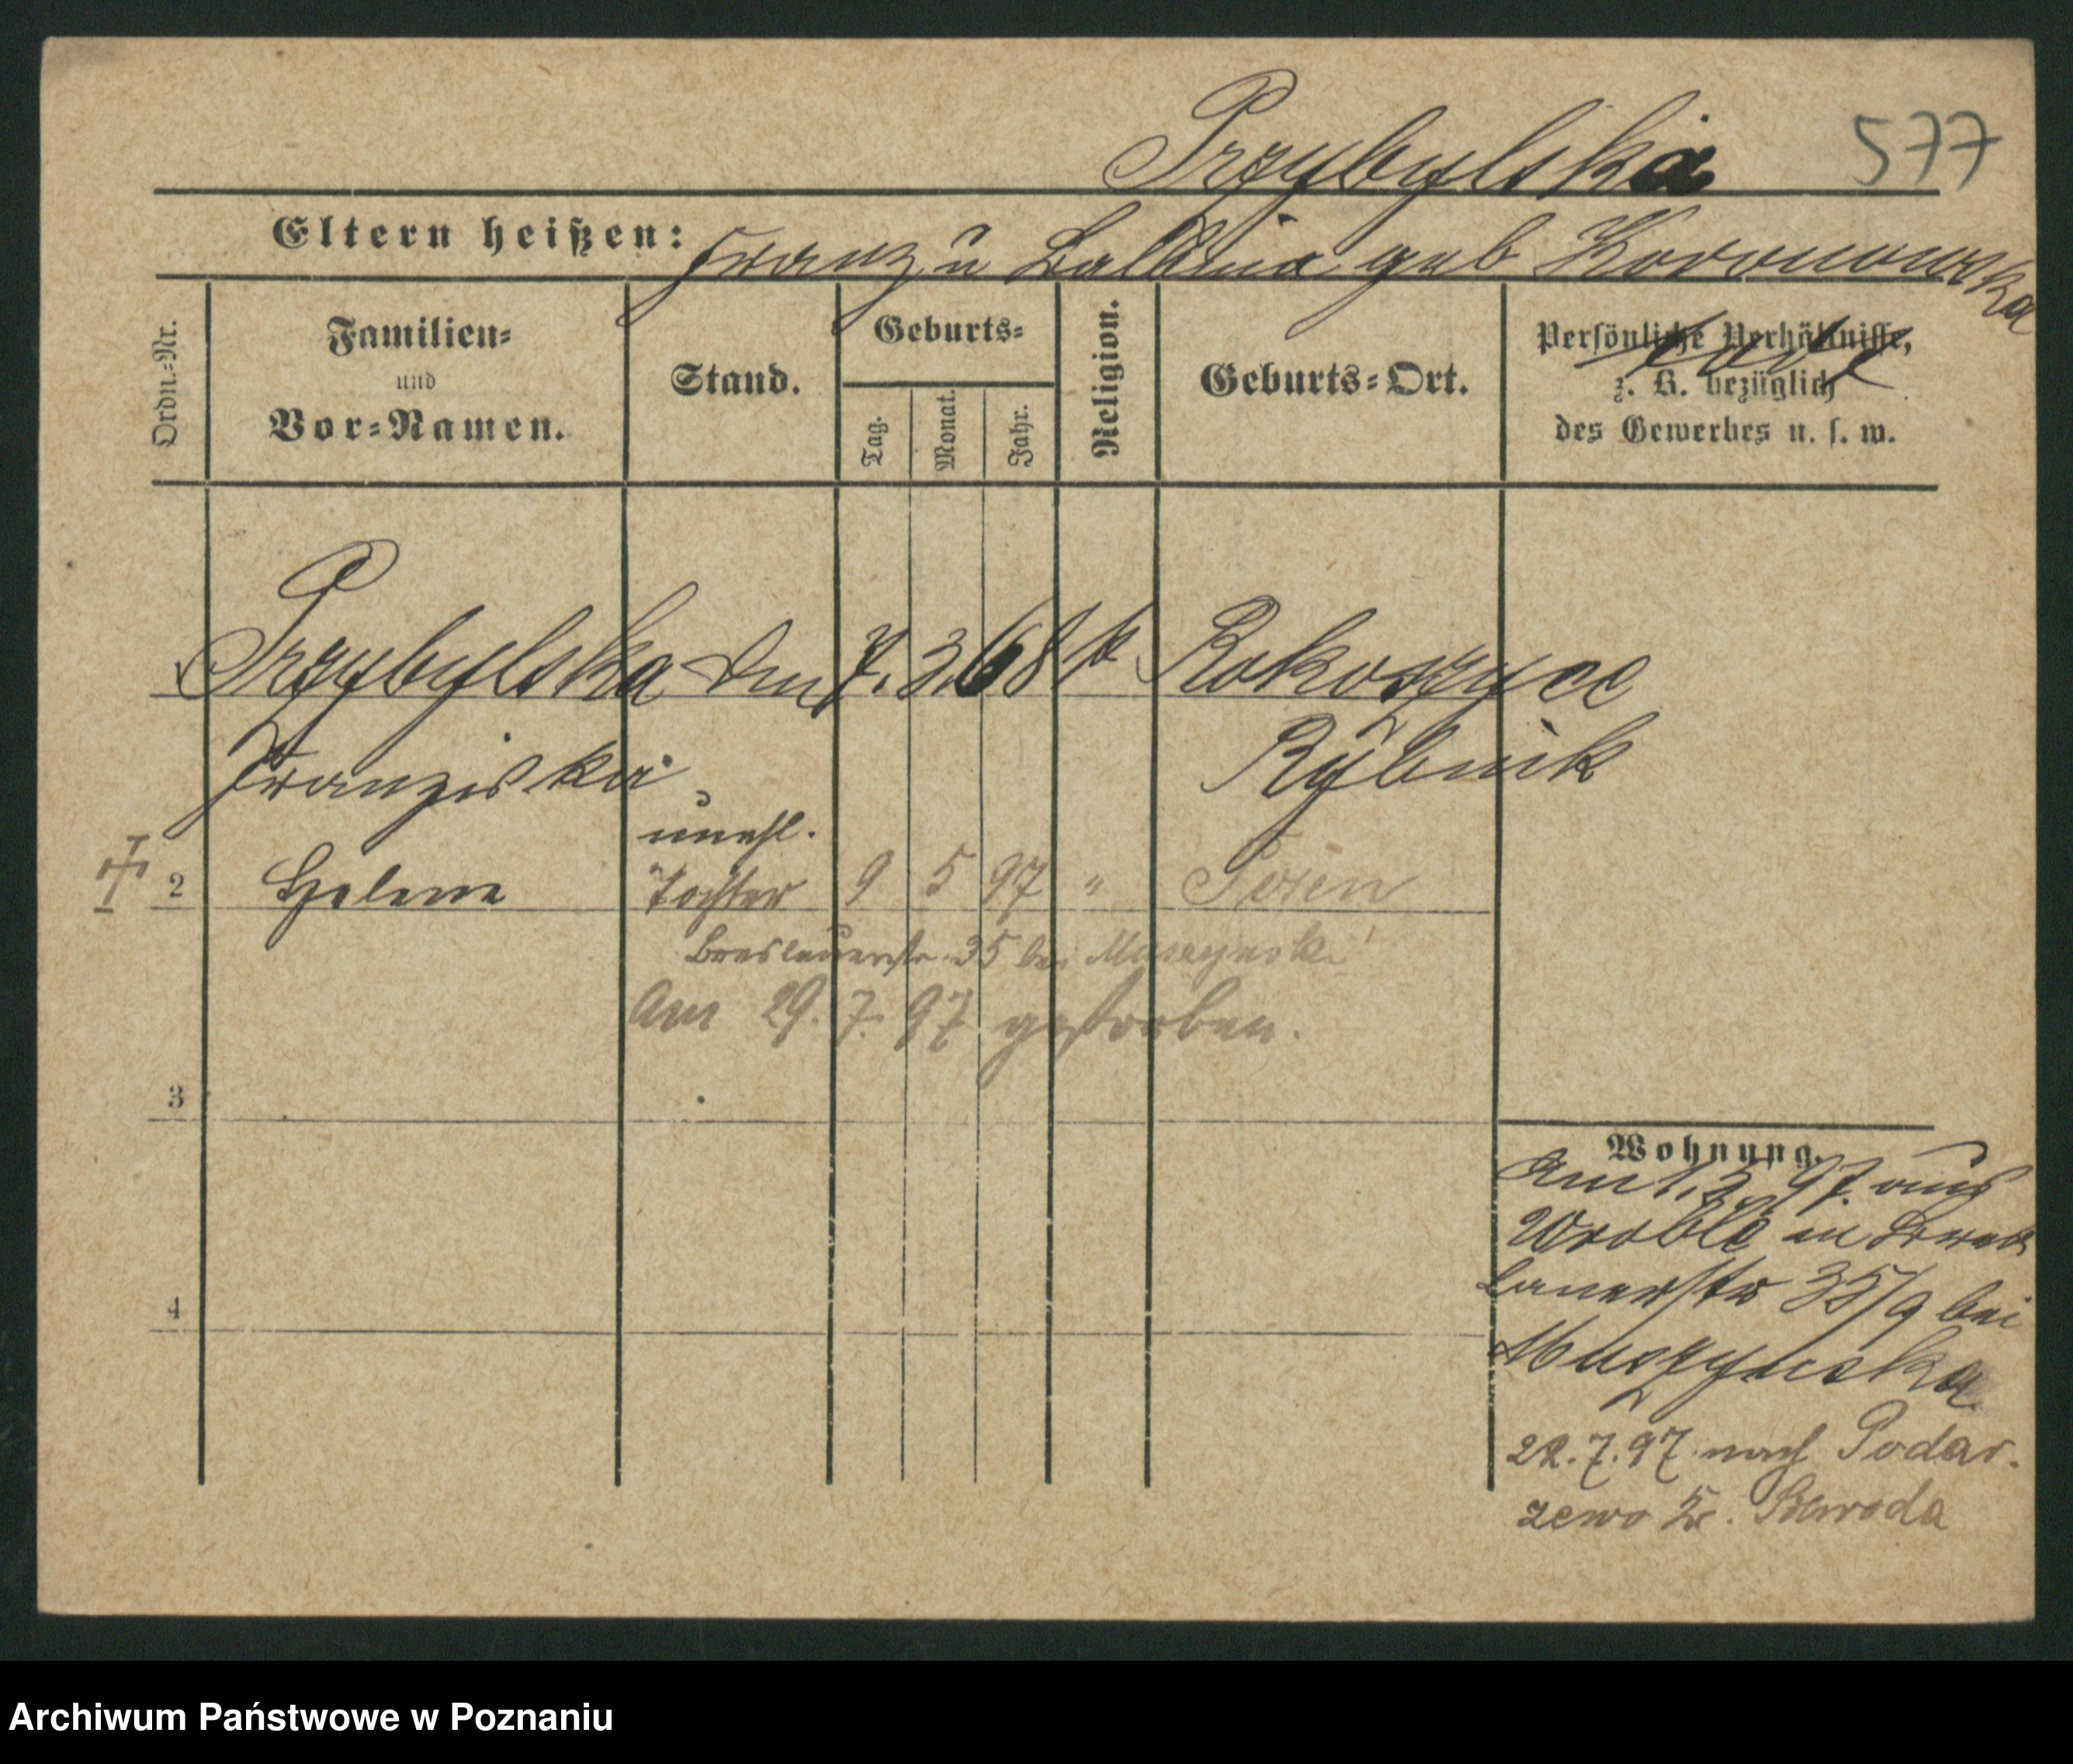 Przybylska 577
Eltern heißen: Franz u Balbina geb Koronowska
Ordn.-Nr.
Familien-
und
Vor-Namen.
Stand.
Geburts-
Tag.
Monat.
Jahr.
Religion.
Geburts-Ort.
Persönliche Verhältnisse,
z. B. bezüglich
des Gewerbes u. s. w.
Przybylska 7. 3. 68 k Rokoszyce
Franziska Rybnik
unehl.
2 Helene Tochter 9 5 97 " Posen
Breslauerstr. 35 bei
Am 29. 7. 97 gestorben.
3
4
Wohnung.
Am 1. 3. 97. aus
Wroble in Bres
lauerstr 35/9 bei
Muszynska
22. 7. 97 nach Podar-
zewo Kr. Schroda
Archiwum Państwowe w Poznaniu